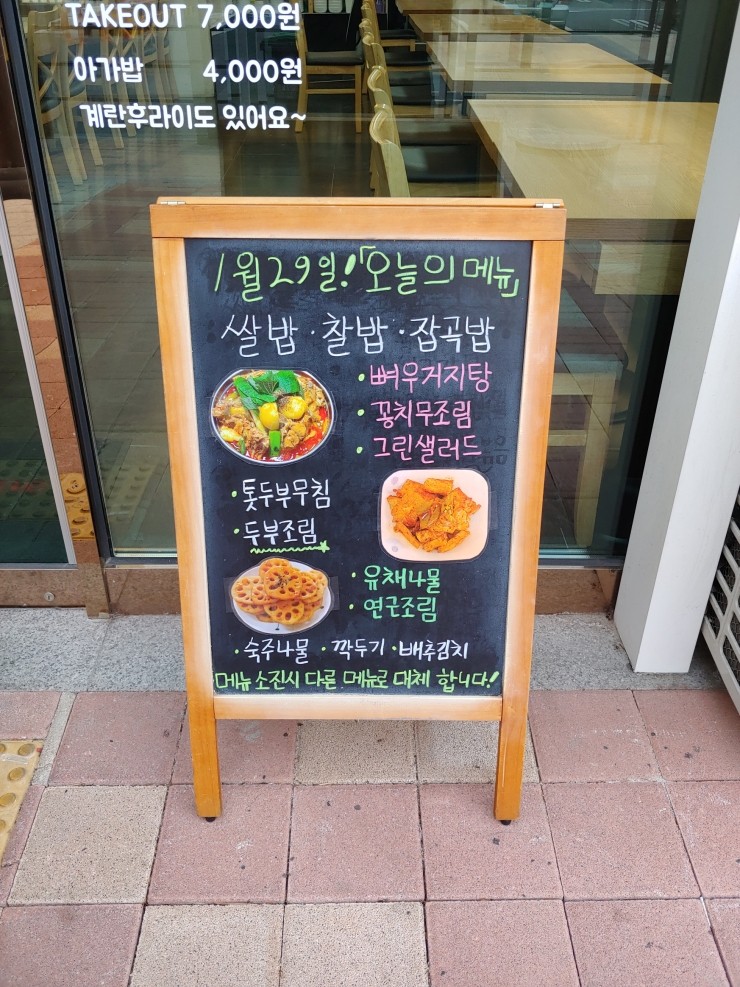 TAKEOUT 7,000원
아가밥 4,000원
계란후라이도 있어요~
1월29일!「오늘의메뉴」
쌀밥·찰밥·잡곡밥
·뼈우거지탕
·꽁치무조림
·그린샐러드
·톳두부무침
·두부조림
·유채나물
·연근조림
·숙주나물 ·깍두기 ·배추김치
메뉴소진시 다른 메뉴로 대체 합니다!